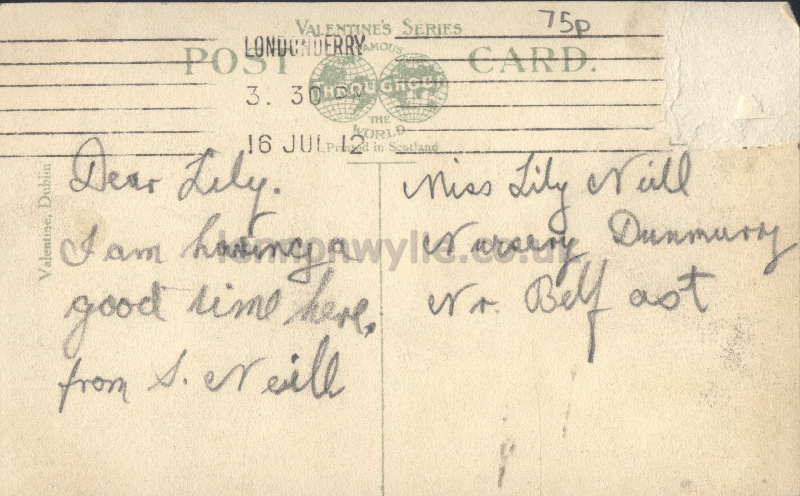 75p
VALENTINE'S SERIES
POST CARD.
FAMOUS
THROUGHOUT
THE
WORLD
Printed in Scotland
LONDONDERRY
3. 30 PM
16 JUL 12
Valentine, Dublin
Dear Lily.
I am having a
good time here.
from S. Neill
Miss Lily Neill
Nursery Dunmurry
Nr. Belfast
lennonwylie.co.uk